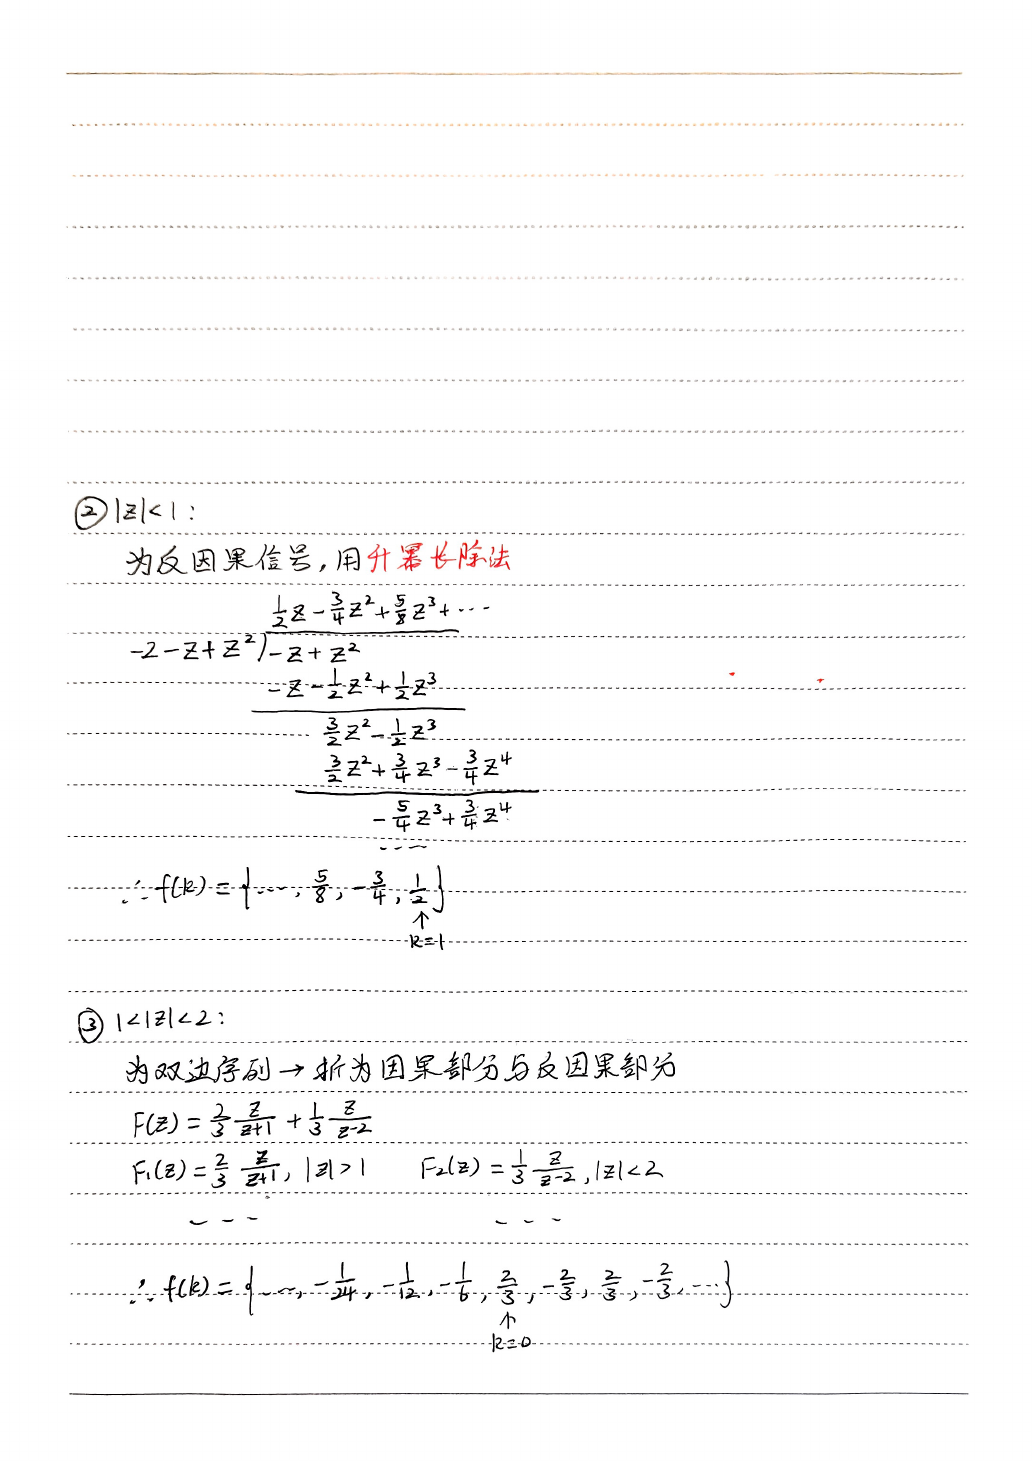 ② |z|<1:
为反因果信号,用升幂长除法
1/2 z - 3/4 z² + 5/8 z³ + ⋯
-2 - z + z² ) -z + z²
-z - 1/2 z² + 1/2 z³
3/2 z² - 1/2 z³
3/2 z² + 3/4 z³ - 3/4 z⁴
-5/4 z³ + 3/4 z⁴
⋯
∴ f(k) = {⋯, 5/8, -3/4, 1/2}
↑
k=1
③ 1<|z|<2:
为双边序列→折为因果部分与反因果部分
F(z) = 2/3 z/(z+1) + 1/3 z/(z-2)
F₁(z) = 2/3 z/(z+1), |z|>1 F₂(z) = 1/3 z/(z-2), |z|<2
⋯ ⋯
∴ f(k) = {⋯, -1/24, -1/12, -1/6, 2/3, -2/3, 2/3, -2/3, ⋯}
↑
k=0